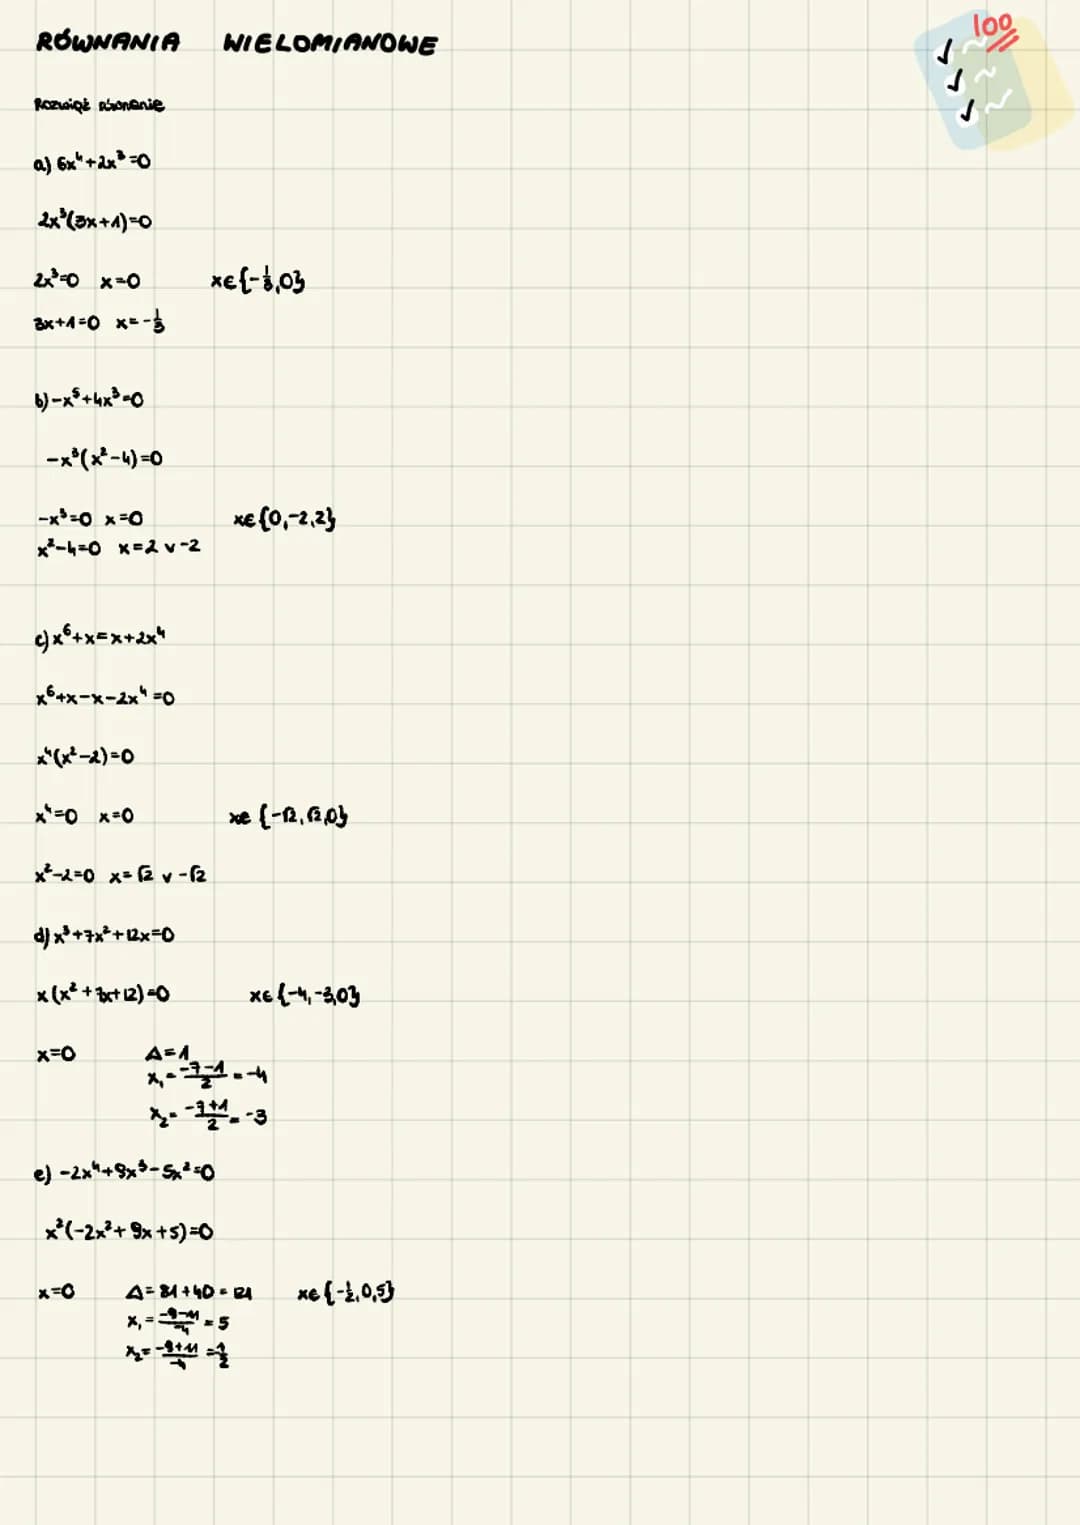 RÓWNANIA WIELOMIANOWE
100
Rozwiąż równanie
a) 6x⁴+2x³=0
2x³(3x+1)=0
2x³=0 x=0 x∈{-1/3,0}
3x+1=0 x=-1/3
b) -x⁵+4x³=0
-x³(x²-4)=0
-x³=0 x=0 x∈{0,-2,2}
x²-4=0 x=2 v -2
c) x⁶+x=x+2x⁴
x⁶+x-x-2x⁴=0
x⁴(x²-2)=0
x⁴=0 x=0 x∈{-√2,√2,0}
x²-2=0 x=√2 v -√2
d) x³+7x²+12x=0
x(x²+7x+12)=0 x∈{-4,-3,0}
x=0 Δ=1
x₁=(-7-1)/2=-4
x₂=(-7+1)/2=-3
e) -2x⁴+9x³-5x²=0
x²(-2x²+9x+5)=0
x=0 Δ=81+40=121 x∈{-1/2,0,5}
x₁=(-9-11)/-4=5
x₂=(-9+11)/-4=-1/2